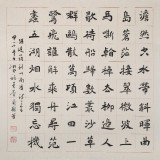 澹然空水帶斜暉曲
島蒼茫接翠微波上
馬嘶看棹去柳邊人
歇待船歸數叢沙草
群鷗散萬頃江田一
鷺飛誰解乘舟尋范
蠡五湖煙水獨忘機